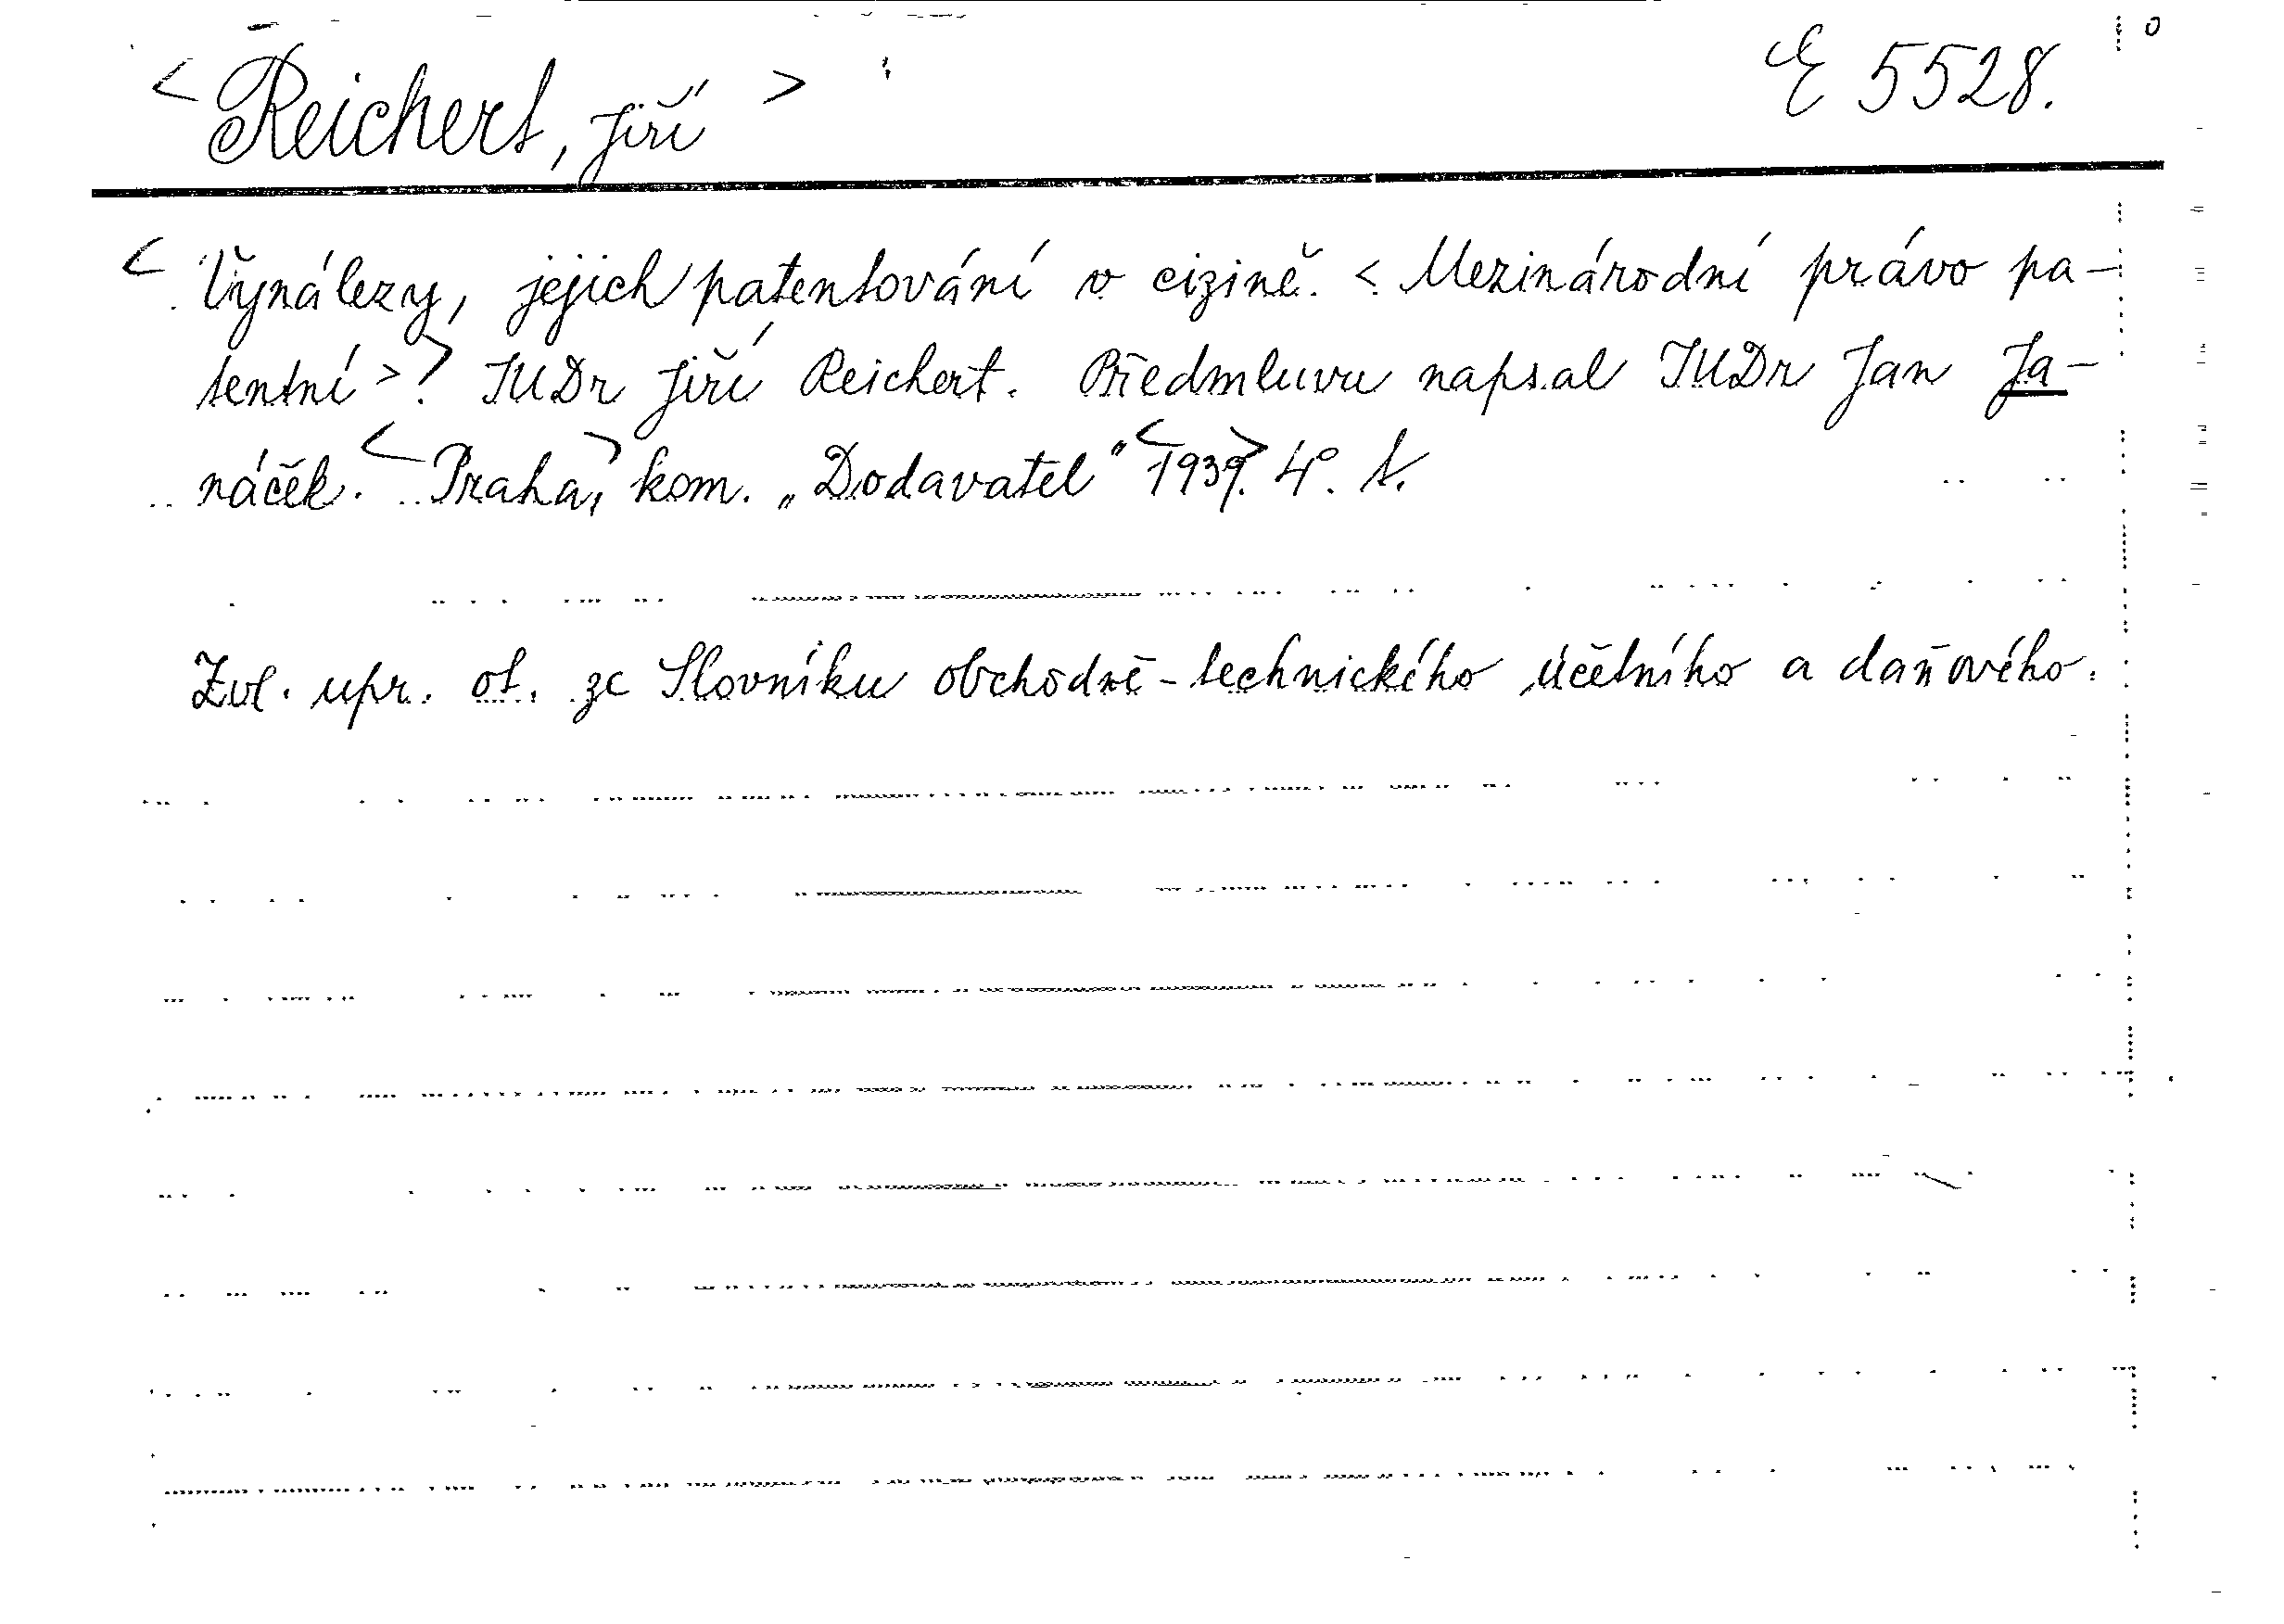 < Reichert, Jiří > E 5528.
< Vynálezy, jejich patentování v cizině. < Mezinárodní právo pa-
tentní > > . JUDr Jiří Reichert. Předmluvu napsal JUDr Jan Ja-
náček. < Praha, > kom. „Dodavatel" < 1939 > . 4°. t.
Zvl. upr. ot. ze Slovníku obchodně-technického účetního a daňového.